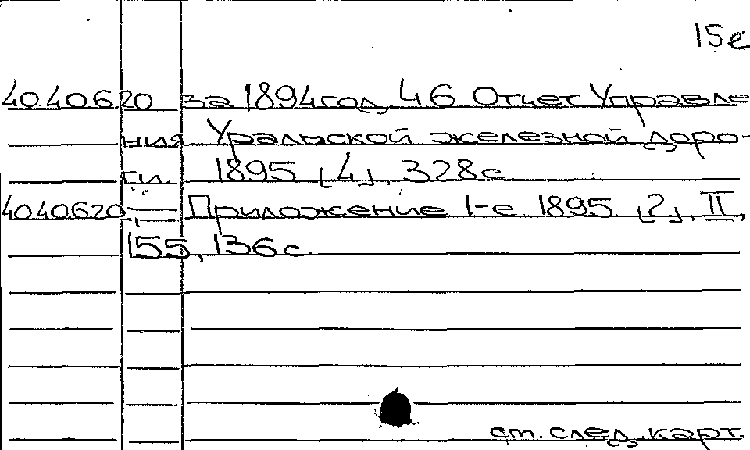 15е
4040620 за 1894 год. 46 Отчет Управле-
ния Уральской железной доро-
ги. 1895 [4], 328 с
4040620 — Приложение 1-е 1895 [2], II,
155, 136 с.
ст. след. карт.